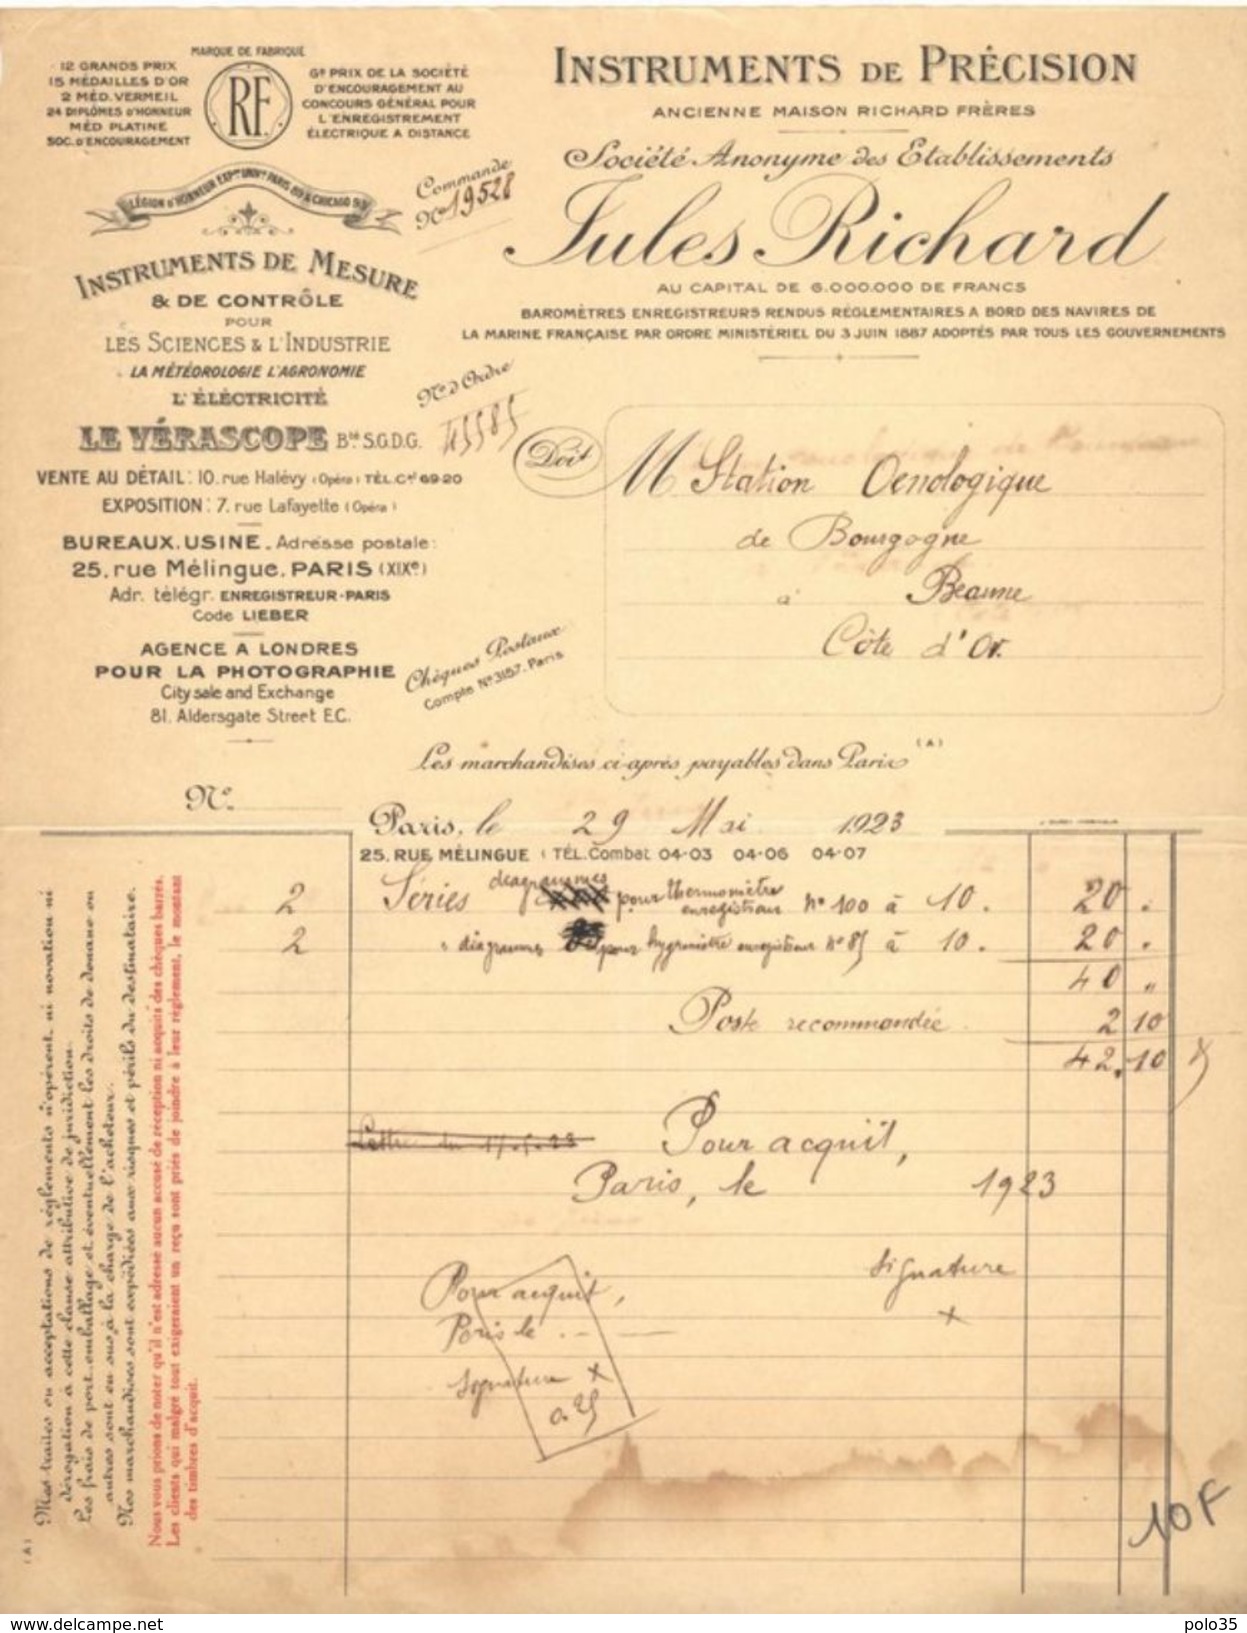 MARQUE DE FABRIQUE
12 GRANDS PRIX
15 MÉDAILLES D'OR
2 MÉD. VERMEIL
24 DIPLÔMES D'HONNEUR
MÉD PLATINE
SOC. D'ENCOURAGEMENT
RF
Gd PRIX DE LA SOCIÉTÉ
D'ENCOURAGEMENT AU
CONCOURS GÉNÉRAL POUR
L'ENREGISTREMENT
ÉLECTRIQUE A DISTANCE
INSTRUMENTS DE PRÉCISION
ANCIENNE MAISON RICHARD FRÈRES
Société Anonyme des Etablissements
Jules Richard
AU CAPITAL DE 6.000.000 DE FRANCS
BAROMÈTRES ENREGISTREURS RENDUS RÉGLEMENTAIRES A BORD DES NAVIRES DE
LA MARINE FRANÇAISE PAR ORDRE MINISTÉRIEL DU 3 JUIN 1887 ADOPTÉS PAR TOUS LES GOUVERNEMENTS
LÉGION D'HONNEUR PARIS & CHICAGO
Commande
No 19528
INSTRUMENTS DE MESURE
& DE CONTRÔLE
POUR
LES SCIENCES & L'INDUSTRIE
LA MÉTÉOROLOGIE L'AGRONOMIE
L'ÉLÉCTRICITÉ
LE VÉRASCOPE Bté S.G.D.G.
No d'Ordre
VENTE AU DÉTAIL: 10. rue Halévy (Opéra) TÉL. Cal 69-20
EXPOSITION: 7. rue Lafayette (Opéra)
BUREAUX. USINE. Adresse postale:
25. rue Mélingue. PARIS (XIXe)
Adr. télégr. ENREGISTREUR-PARIS
Code LIEBER
AGENCE A LONDRES
POUR LA PHOTOGRAPHIE
City sale and Exchange
81. Aldersgate Street E.C.
Chèques Postaux
Compte No 3157. Paris
Doit
M Station Oenologique
de Bourgogne
à Beaune
Côte d'Or.
Les marchandises ci-après payables dans Paris (A)
No
Paris, le 29 Mai 1923
25. RUE MÉLINGUE TÉL. Combat 04-03 04-06 04-07
2 Séries diagrammes pour thermomètre enregistreur No 100 à 10. 20 .
2 " diagrammes pour hygromètre enregistreur No 85 à 10. 20 .
40 "
Poste recommandée. 2 10
42,10
Lettre du 17.5.23
Pour acquit,
Paris, le 1923
signature
x
Pour acquit,
Paris le
signature x
0.25
10F
Mes traites ou acceptations de réglements n'opèrent, ni novation ni
dérogation à cette clause attributive de juridiction.
Les frais de port, emballage et éventuellement les droits de douane ou
autres sont en sus à la charge de l'acheteur.
Nos marchandises sont expédiées aux risques et périls du destinataire.
(A)
Nous vous prions de noter qu'il n'est adressé aucun accusé de réception ni acquits des chèques barrés.
Les clients qui malgré tout exigeraient un reçu sont priés de joindre à leur réglement, le montant
des timbres d'acquit.
www.delcampe.net
polo35